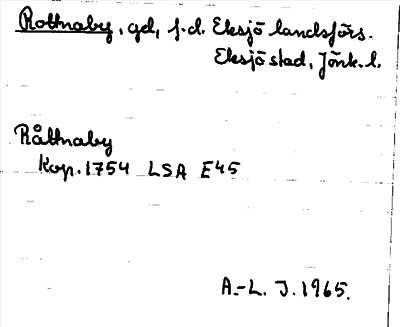 Rottnaby, gd, f.d. Eksjö landsförs.
Eksjö stad, Jönk. l.
Råttnaby
Kop. 1754 LSA E45
A.-L. J. 1965.